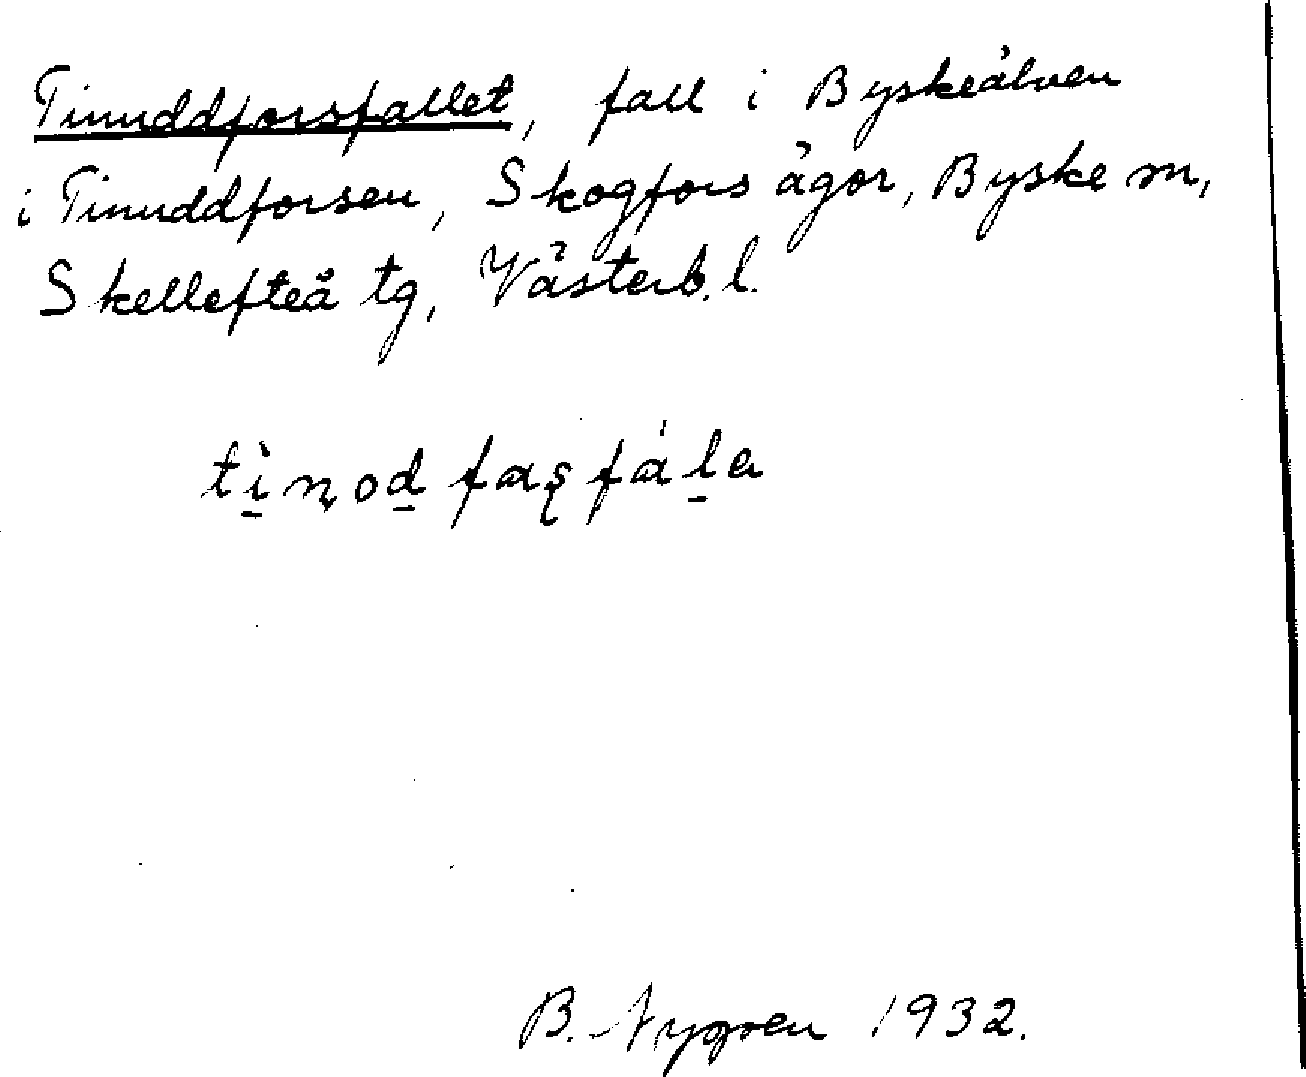 Tinuddforsfallet, fall i Byskeälven
i Tinuddforsen, Skogfors ägor, Byske sn,
Skellefteå tg, Västerb. l.
tìṉod fasfála
B. Nygren 1932.